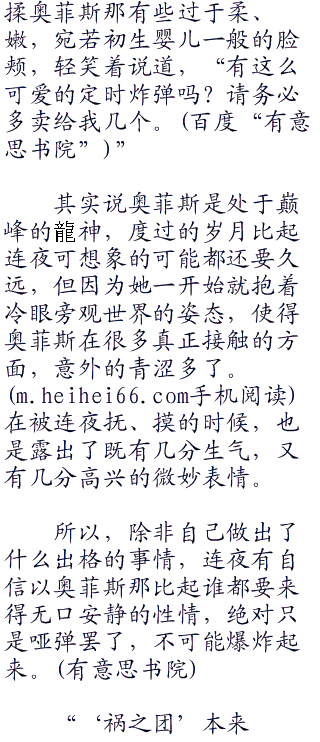 揉奥菲斯那有些过于柔、
嫩，宛若初生婴儿一般的脸
颊，轻笑着说道，“有这么
可爱的定时炸弹吗？请务必
多卖给我几个。(百度“有意
思书院”)”
其实说奥菲斯是处于巅
峰的龍神，度过的岁月比起
连夜可想象的可能都还要久
远，但因为她一开始就抱着
冷眼旁观世界的姿态，使得
奥菲斯在很多真正接触的方
面，意外的青涩多了。
(m.heihei66.com手机阅读)
在被连夜抚、摸的时候，也
是露出了既有几分生气，又
有几分高兴的微妙表情。
所以，除非自己做出了
什么出格的事情，连夜有自
信以奥菲斯那比起谁都要来
得无口安静的性情，绝对只
是哑弹罢了，不可能爆炸起
来。(有意思书院)
“‘祸之团’本来